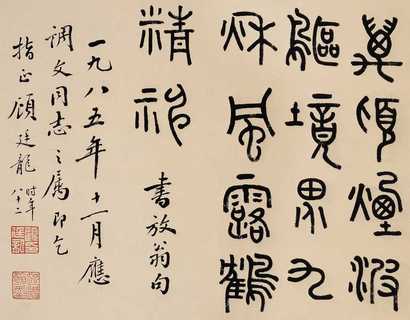 萬頃煙波
鷗境界九
秋風露鶴
精神
書放翁句
一九八五年十一月應
調文同志之屬即乞
指正顧廷龍時年
八十二